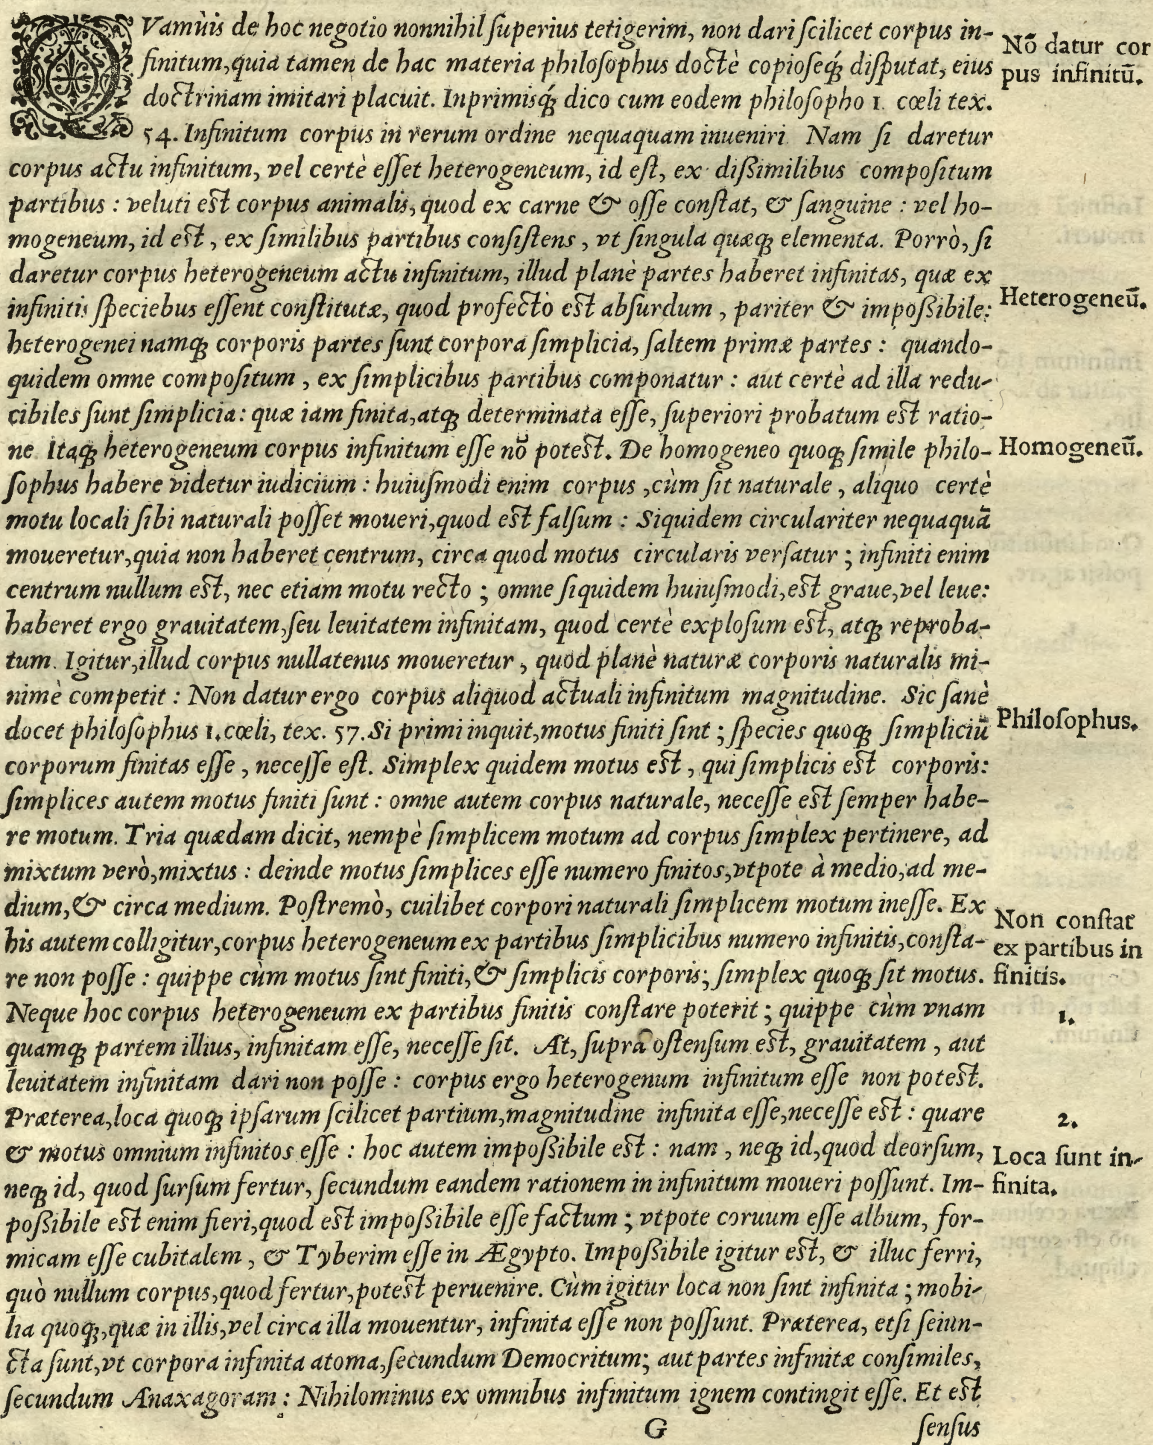 QVamùis de hoc negotio nonnihil ſuperius tetigerim, non dari ſcilicet corpus in-
finitum, quia tamen de hac materia philoſophus doctè copioſeq́; diſputat, eius
doctrinam imitari placuit. Inprimisq́; dico cum eodem philoſopho 1. cœli tex.
54. Infinitum corpus in rerum ordine nequaquam inueniri. Nam ſi daretur
corpus actu infinitum, vel certè eſſet heterogeneum, id eſt, ex dißimilibus compoſitum
partibus : veluti eſt corpus animalis, quod ex carne & oſſe conſtat, & ſanguine : vel ho-
mogeneum, id eſt, ex ſimilibus partibus conſiſtens, vt ſingula quæq; elementa. Porrò, ſi
daretur corpus heterogeneum actu infinitum, illud planè partes haberet infinitas, quæ ex
infinitis ſpeciebus eſſent conſtitutæ, quod profectò eſt abſurdum, pariter & impoßibile:
heterogenei namq; corporis partes ſunt corpora ſimplicia, ſaltem primæ partes : quando-
quidem omne compoſitum, ex ſimplicibus partibus componatur : aut certè ad illa redu-
cibiles ſunt ſimplicia: quæ iam finita, atq; determinata eſſe, ſuperiori probatum eſt ratio-
ne. Itaq; heterogeneum corpus infinitum eſſe nō poteſt. De homogeneo quoq; ſimile philo-
ſophus habere videtur iudicium : huiuſmodi enim corpus, cùm ſit naturale, aliquo certè
motu locali ſibi naturali poſſet moueri, quod eſt falſum : Siquidem circulariter nequaquā
moueretur, quia non haberet centrum, circa quod motus circularis verſatur ; infiniti enim
centrum nullum eſt, nec etiam motu recto ; omne ſiquidem huiuſmodi, eſt graue, vel leue:
haberet ergo grauitatem, ſeu leuitatem infinitam, quod certè exploſum eſt, atq; reproba-
tum. Igitur, illud corpus nullatenus moueretur, quod planè naturæ corporis naturalis mi-
nimè competit : Non datur ergo corpus aliquod actuali infinitum magnitudine. Sic ſanè
docet philoſophus 1. cœli, tex. 57. Si primi inquit, motus finiti ſint ; ſpecies quoq; ſimpliciū
corporum finitas eſſe, neceſſe eſt. Simplex quidem motus eſt, qui ſimplicis eſt corporis:
ſimplices autem motus finiti ſunt : omne autem corpus naturale, neceſſe eſt ſemper habe-
re motum. Tria quædam dicit, nempè ſimplicem motum ad corpus ſimplex pertinere, ad
mixtum verò, mixtus : deinde motus ſimplices eſſe numero finitos, vtpote à medio, ad me-
dium, & circa medium. Poſtremò, cuilibet corpori naturali ſimplicem motum ineſſe. Ex
his autem colligitur, corpus heterogeneum ex partibus ſimplicibus numero infinitis, conſta-
re non poſſe : quippe cùm motus ſint finiti, & ſimplicis corporis; ſimplex quoq; ſit motus.
Neque hoc corpus heterogeneum ex partibus finitis conſtare poterit ; quippe cùm vnam
quamq; partem illius, infinitam eſſe, neceſſe ſit. At, ſuprà oſtenſum eſt, grauitatem, aut
leuitatem infinitam dari non poſſe : corpus ergo heterogenum infinitum eſſe non poteſt.
Præterea, loca quoq; ipſarum ſcilicet partium, magnitudine infinita eſſe, neceſſe eſt : quare
& motus omnium infinitos eſſe : hoc autem impoßibile eſt : nam, neq; id, quod deorſum,
neq; id, quod ſurſum fertur, ſecundum eandem rationem in infinitum moueri poſſunt. Im-
poßibile eſt enim fieri, quod eſt impoßibile eſſe factum ; vtpote coruum eſſe album, for-
micam eſſe cubitalem, & Tyberim eſſe in Ægypto. Impoßibile igitur eſt, & illuc ferri,
quò nullum corpus, quod fertur, poteſt peruenire. Cùm igitur loca non ſint infinita ; mobi-
lia quoq;, quæ in illis, vel circa illa mouentur, infinita eſſe non poſſunt. Præterea, etſi ſeiun-
cta ſunt, vt corpora infinita atoma, ſecundum Democritum; aut partes infinitæ conſimiles,
ſecundum Anaxagoram : Nihilominus ex omnibus infinitum ignem contingit eſſe. Et eſt
G ſenſus
Nō datur cor
pus infinitū.
Heterogeneū.
Homogeneū.
Philoſophus.
Non conſtat
ex partibus in
finitis.
1.
2.
Loca ſunt in-
finita.